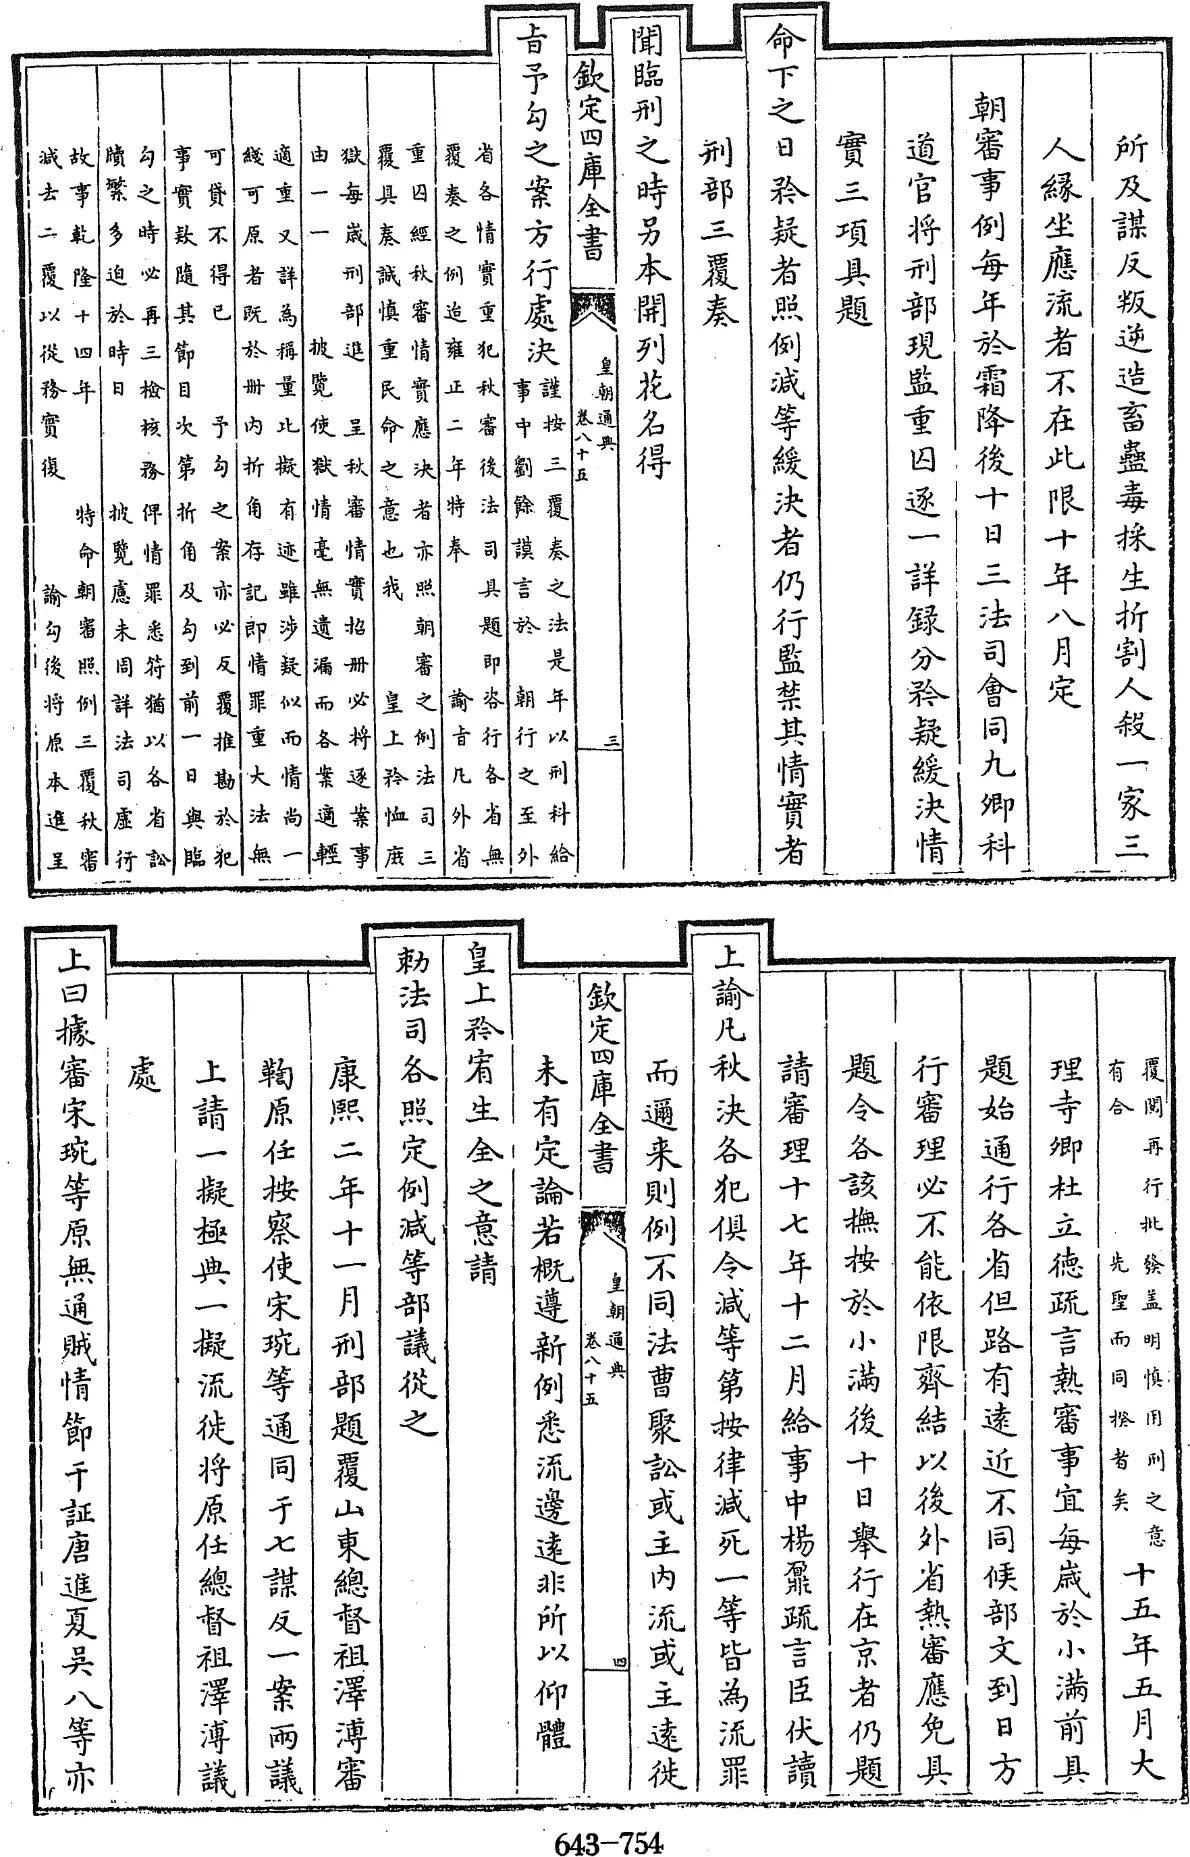 所及謀反叛逆造畜蠱毒採生折割人殺一家三
人縁坐應流者不在此限十年八月定
朝審事例每年於霜降後十日三法司會同九卿科
道官将刑部現監重囚逐一詳録分矜疑緩決情
實三項具題
命下之日矜疑者照例減等緩決者仍行監禁其情實者
刑部三覆奏
聞臨刑之時另本開列花名得
欽定四庫全書 皇朝通典 卷八十五 三
㫖予勾之案方行處決 謹按三覆奏之法是年以刑科給
事中劉餘謨言於 朝行之至外
省各情實重犯秋審後法司具題即咨行各省無
覆奏之例迨雍正二年特奉 諭㫖凡外省
重囚經秋審情實應決者亦照朝審之例法司三
覆具奏誠慎重民命之意也我 皇上矜恤庶
獄每嵗刑部進 呈秋審情實招册必將逐案事
由一一 披覽使獄情毫無遺漏而各案適輕
適重又詳為稱量比擬有迹雖涉疑似而情尚一
綫可原者既於册内折角存記即情罪重大法無
可貸不得已 予勾之案亦必反覆推勘於犯
事實欵隨其節目次第折角及勾到前一日與臨
勾之時必再三檢核務俾情罪悉符猶以各省訟
牘繁多迫於時日 披覽慮未周詳法司虛行
故事乾隆十四年 特命朝審照例三覆秋審
減去二覆以從務實復 諭勾後將原本進呈
覆閱再行批發盖明慎用刑之意
有合 先聖而同揆者矣 十五年五月大
理寺卿杜立德疏言熱審事宜每嵗於小滿前具
題始通行各省但路有遠近不同候部文到日方
行審理必不能依限齊結以後外省熱審應免具
題令各該撫按於小滿後十日舉行在京者仍題
請審理十七年十二月給事中楊鼐疏言臣伏讀
上諭凡秋決各犯俱令減等第按律減死一等皆為流罪
而邇来則例不同法曹聚訟或主内流或主逺徙
欽定四庫全書 皇朝通典 卷八十五 四
未有定論若概遵新例悉流邊逺非所以仰體
皇上矜宥生全之意請
勅法司各照定例減等部議從之
康熙二年十一月刑部題覆山東總督祖澤溥審
鞫原任按察使宋琬等通同于七謀反一案兩議
上請一擬極典一擬流徙将原任總督祖澤溥議
處
上曰據審宋琬等原無通賊情節干証唐進夏吴八等亦
643-754